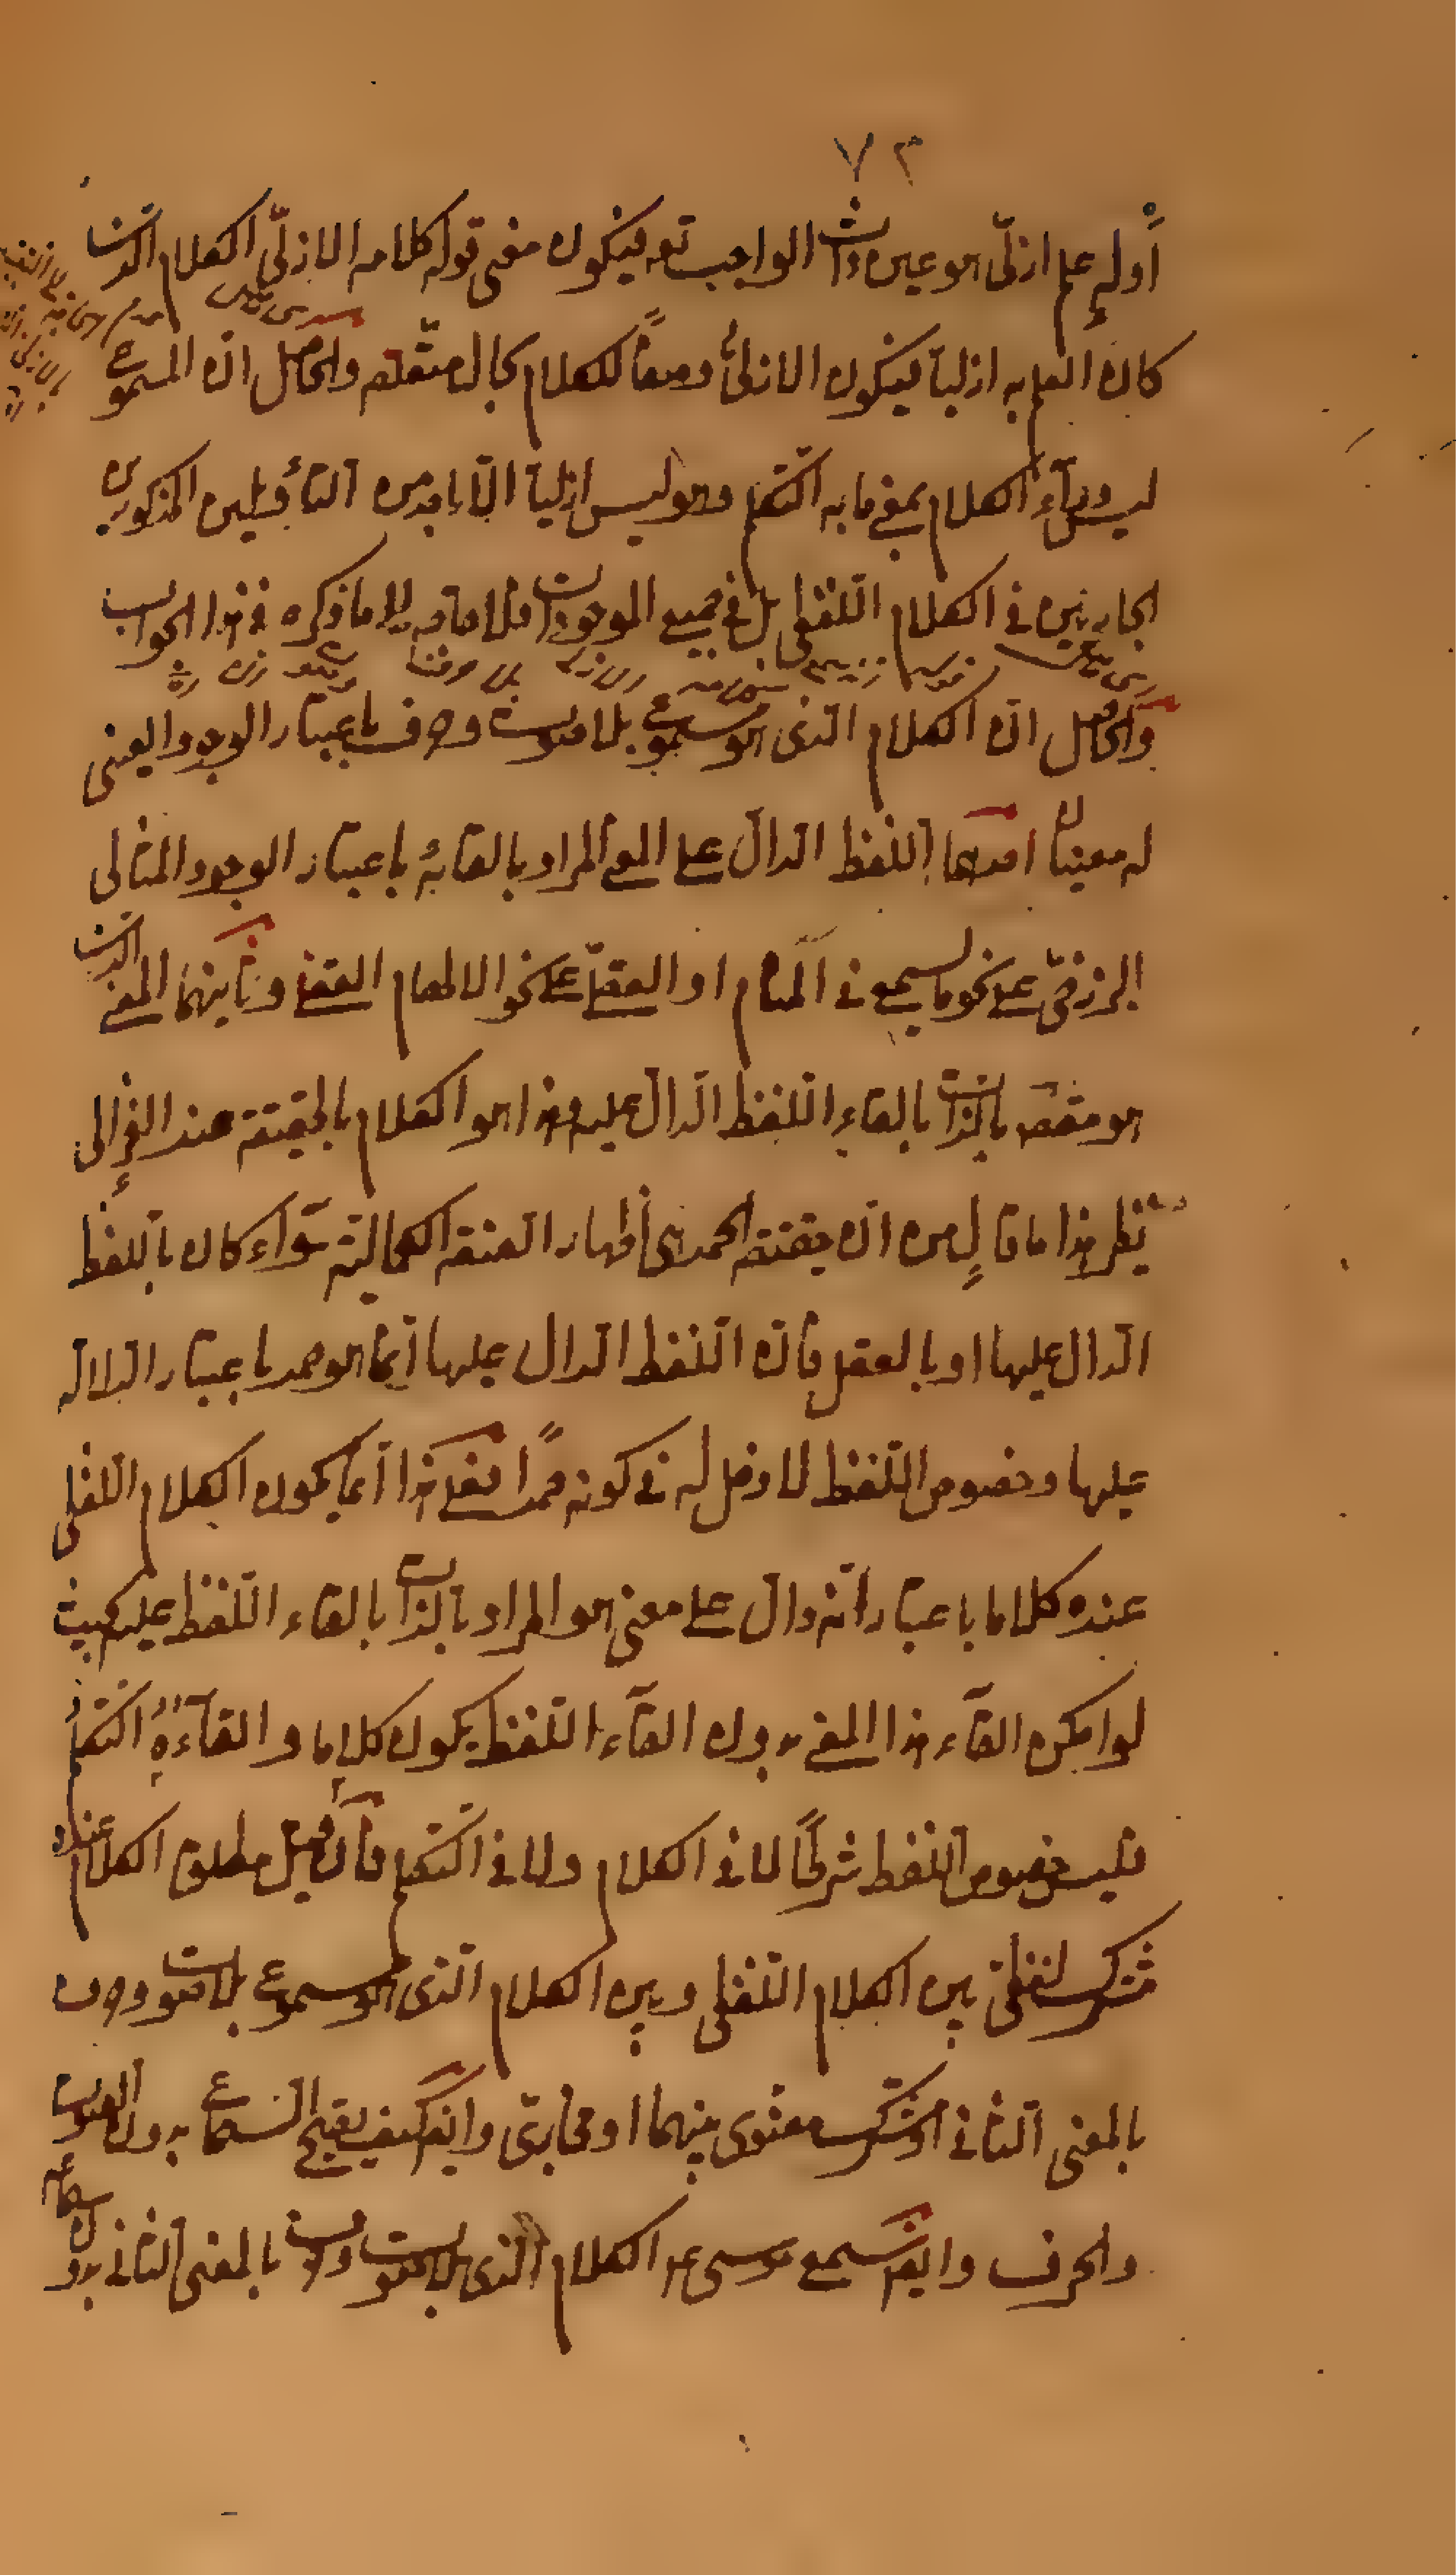 ٧٢
أو له علم ازلىّ هو عين ذات الواجب تع فيكون معنى قوله كلامه الازلىّ الكلام الذى
كان العلم به ازلياً فيكون الازلىُّ وصفاً للكلام بحال متعلقه والحاصل ان المسموع
ليس وراء الكلام بمعنى ما به التكلم وهو ليس ازلياً الا باحد من التأويلين المذكورين
الجاريين فى الكلام اللفظى بل فى جميع الموجودات فلا حاجة الى ما ذكره فى هذا الجواب
والحاصل ان الكلام الذى هو مسموع بلا صوت وحرف باعتبار الوجود العينى
له معنيان احدهما اللفظ الدال على المعنى المراد بالقائه باعتبار الوجود المثالى
البرزخىّ على نحو ما يسمع فى المنام او العقلىّ على نحو الالهام العقلى وثانيهما المعنى الذى
هو مقصود بالذات بالقاء اللفظ الدال عليه وهذا هو الكلام بالحقيقة عند الغزالى
نظير هذا ما قال من ان حقيقة الحمد هى اظهار الصفة الكمالية سواء كان باللفظ
الدال عليها او بالفعل فان اللفظ الدال عليها انما هو حمد باعتبار الدلالة
عليها وخصوص اللفظ لا دخل له فى كونه حمداً فعلى هذا انما يكون الكلام اللفظى
عنده كلاما باعتبار انه دال على معنى هو المراد بالذات بالقاء اللفظ عليه بحيث
لو امكن القاء هذا المعنى بدون القاء اللفظ يكون كلاما والقاءهُ التكلم
فليس خصوص اللفظ شرطاً لا فى الكلام ولا فى التكلم فان قيل مطلق الكلام عنده
مشترك لفظىّ بين الكلام اللفظى وبين الكلام الذى هو مسموع بلا صوت وحرف
بالمعنى الثانى او مشترك معنوى بينهما او مجازىّ وايضا كيف يصح السماع بدون الصوت
والحرف وايضا سمع موسى عم الكلام الذى بلا صوت وحرف بالمعنى الثانى بدون سماعه